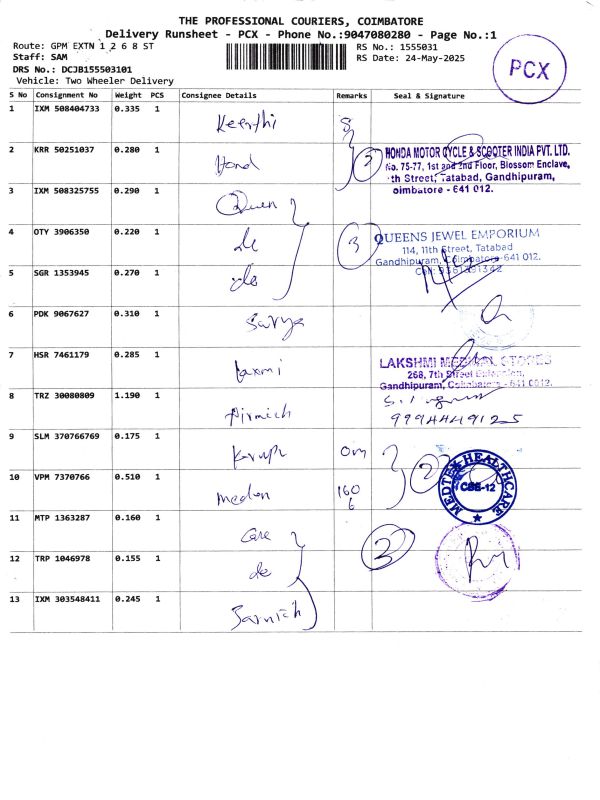 THE PROFESSIONAL COURIERS, COIMBATORE
Delivery Runsheet - PCX - Phone No.:9047080280 - Page No.:1
Route: GPM EXTN 1 2 6 8 ST
RS No.: 1555031
Staff: SAM
RS Date: 24-May-2025
DRS No.: DCJB155503101
Vehicle: Two Wheeler Delivery
PCX
S No Consignment No Weight PCS Consignee Details Remarks Seal & Signature
1 IXM 508404733 0.335 1 Keerthi
2 KRR 50251037 0.280 1 Hond
HONDA MOTOR CYCLE & SCOOTER INDIA PVT. LTD.
No. 75-77, 1st and 2nd Floor, Blossom Enclave,
th Street, Tatabad, Gandhipuram,
oimbatore - 641 012.
3 IXM 508325755 0.290 1 Queen
4 OTY 3906350 0.220 1 do
3
QUEENS JEWEL EMPORIUM
114, 11th Street, Tatabad
Gandhipuram, Coimbatore-641 012.
5 SGR 1353945 0.270 1 do
6 PDK 9067627 0.310 1 Surya
7 HSR 7461179 0.285 1 Laxmi
LAKSHMI MEDICAL STORES
268, 7th Street Extension,
Gandhipuram, Coimbatore - 641 0012.
8 TRZ 30080809 1.190 1
9994449125
9 SLM 370766769 0.175 1
2
10 VPM 7370766 0.510 1 160
MEDTEK HEALTHCARE
CBE-12
11 MTP 1363287 0.160 1 Care
12 TRP 1046978 0.155 1 do
13 IXM 303548411 0.245 1